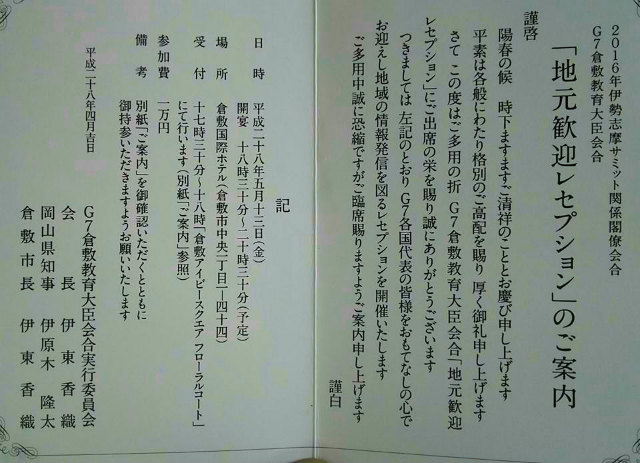 2016年伊勢志摩サミット関係閣僚会合
G7倉敷教育大臣会合
「地元歓迎レセプション」のご案内
謹啓
陽春の候　時下ますますご清祥のこととお慶び申し上げます
平素は各般にわたり格別のご高配を賜り 厚く御礼申し上げます
さて この度はご多用の折 G7倉敷教育大臣会合「地元歓迎
レセプション」にご出席の栄を賜り誠にありがとうございます
つきましては 左記のとおり G7各国代表の皆様をおもてなしの心で
お迎えし地域の情報発信を図るレセプションを開催いたします
ご多用中誠に恐縮ですがご臨席賜りますようご案内申し上げます
謹白
記
日　時　平成二十八年五月十三日(金)
開宴　十八時三十分〜二十時三十分(予定)
場　所　倉敷国際ホテル(倉敷市中央一丁目一―四十四)
受　付　十七時三十分〜十八時「倉敷アイビースクエア フローラルコート」
にて行います(別紙「ご案内」参照)
参加費　一万円
備　考　別紙「ご案内」を御確認いただくとともに
御持参いただきますようお願いいたします
平成二十八年四月吉日
G7倉敷教育大臣会合実行委員会
会　　長　伊 東 香 織
岡山県知事　伊原木 隆太
倉 敷 市 長　伊 東 香 織